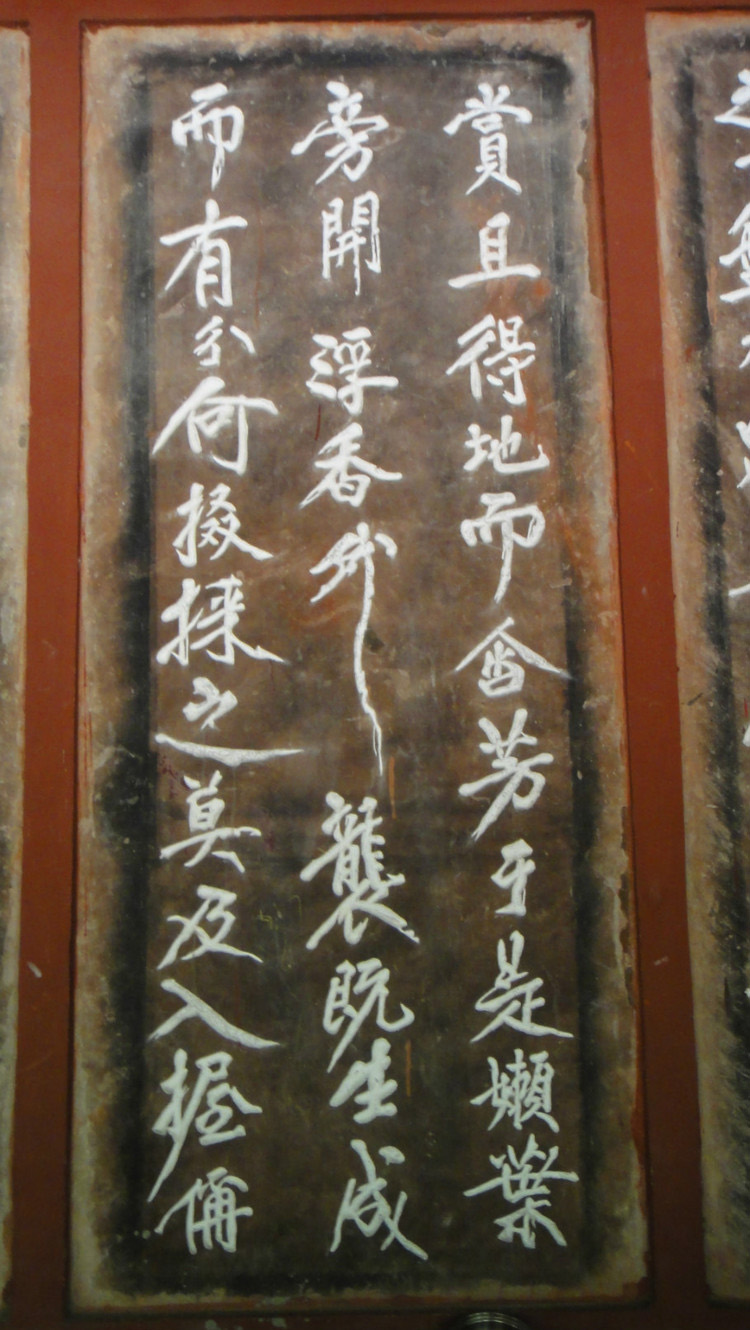 賞且得地而含芳于是嬾葉
旁開浮香外襲既生成
而有分何掇採之莫及入握偁